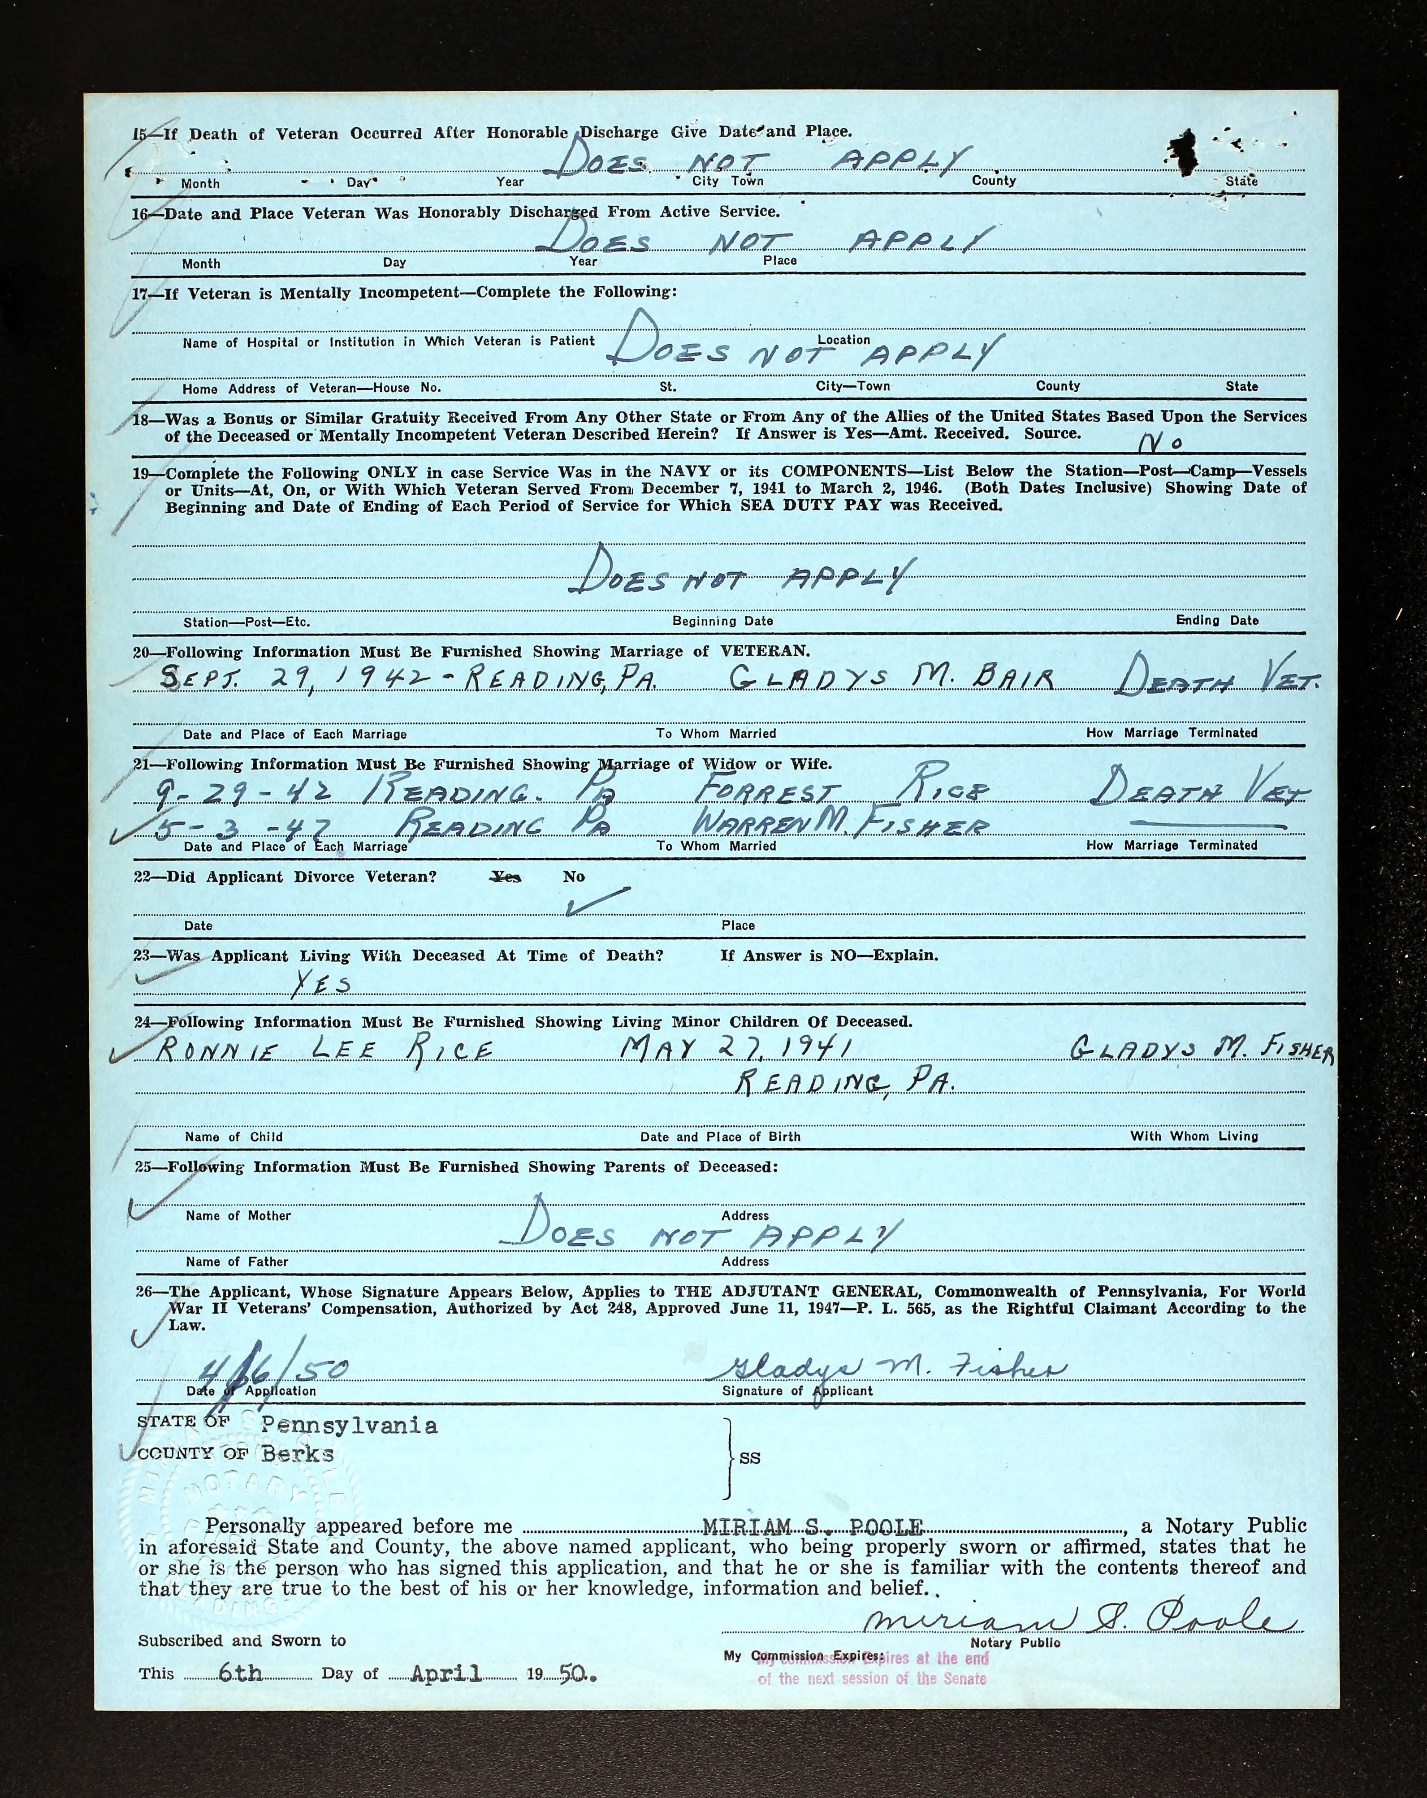 15—If Death of Veteran Occurred After Honorable Discharge Give Date and Place.
DOES NOT APPLY
Month Day Year City Town County State
16—Date and Place Veteran Was Honorably Discharged From Active Service.
DOES NOT APPLY
Month Day Year Place
17—If Veteran is Mentally Incompetent—Complete the Following:
Name of Hospital or Institution in Which Veteran is Patient Location
DOES NOT APPLY
Home Address of Veteran—House No. St. City—Town County State
18—Was a Bonus or Similar Gratuity Received From Any Other State or From Any of the Allies of the United States Based Upon the Services
of the Deceased or Mentally Incompetent Veteran Described Herein? If Answer is Yes—Amt. Received. Source.
No
19—Complete the Following ONLY in case Service Was in the NAVY or its COMPONENTS—List Below the Station—Post—Camp—Vessels
or Units—At, On, or With Which Veteran Served From December 7, 1941 to March 2, 1946. (Both Dates Inclusive) Showing Date of
Beginning and Date of Ending of Each Period of Service for Which SEA DUTY PAY was Received.
DOES NOT APPLY
Station—Post—Etc. Beginning Date Ending Date
20—Following Information Must Be Furnished Showing Marriage of VETERAN.
SEPT. 29, 1942 - READING, PA. GLADYS M. BAIR DEATH VET.
Date and Place of Each Marriage To Whom Married How Marriage Terminated
21—Following Information Must Be Furnished Showing Marriage of Widow or Wife.
9-29-42 READING. PA FORREST RICE DEATH VET
5-3-47 READING PA WARREN M. FISHER
Date and Place of Each Marriage To Whom Married How Marriage Terminated
22—Did Applicant Divorce Veteran? Yes No
Date Place
23—Was Applicant Living With Deceased At Time of Death? If Answer is NO—Explain.
YES
24—Following Information Must Be Furnished Showing Living Minor Children Of Deceased.
RONNIE LEE RICE MAY 27, 1941 GLADYS M. FISHER
READING, PA.
Name of Child Date and Place of Birth With Whom Living
25—Following Information Must Be Furnished Showing Parents of Deceased:
Name of Mother Address
DOES NOT APPLY
Name of Father Address
26—The Applicant, Whose Signature Appears Below, Applies to THE ADJUTANT GENERAL, Commonwealth of Pennsylvania, For World
War II Veterans' Compensation, Authorized by Act 248, Approved June 11, 1947—P. L. 565, as the Rightful Claimant According to the
Law.
4/6/50 Gladys M. Fisher
Date of Application Signature of Applicant
STATE OF Pennsylvania
COUNTY OF Berks SS
Personally appeared before me MIRIAM S. POOLE, a Notary Public
in aforesaid State and County, the above named applicant, who being properly sworn or affirmed, states that he
or she is the person who has signed this application, and that he or she is familiar with the contents thereof and
that they are true to the best of his or her knowledge, information and belief.
Miriam S. Poole
Subscribed and Sworn to Notary Public
My Commission Expires: My Commission Expires at the end
This 6th Day of April 1950. of the next session of the Senate